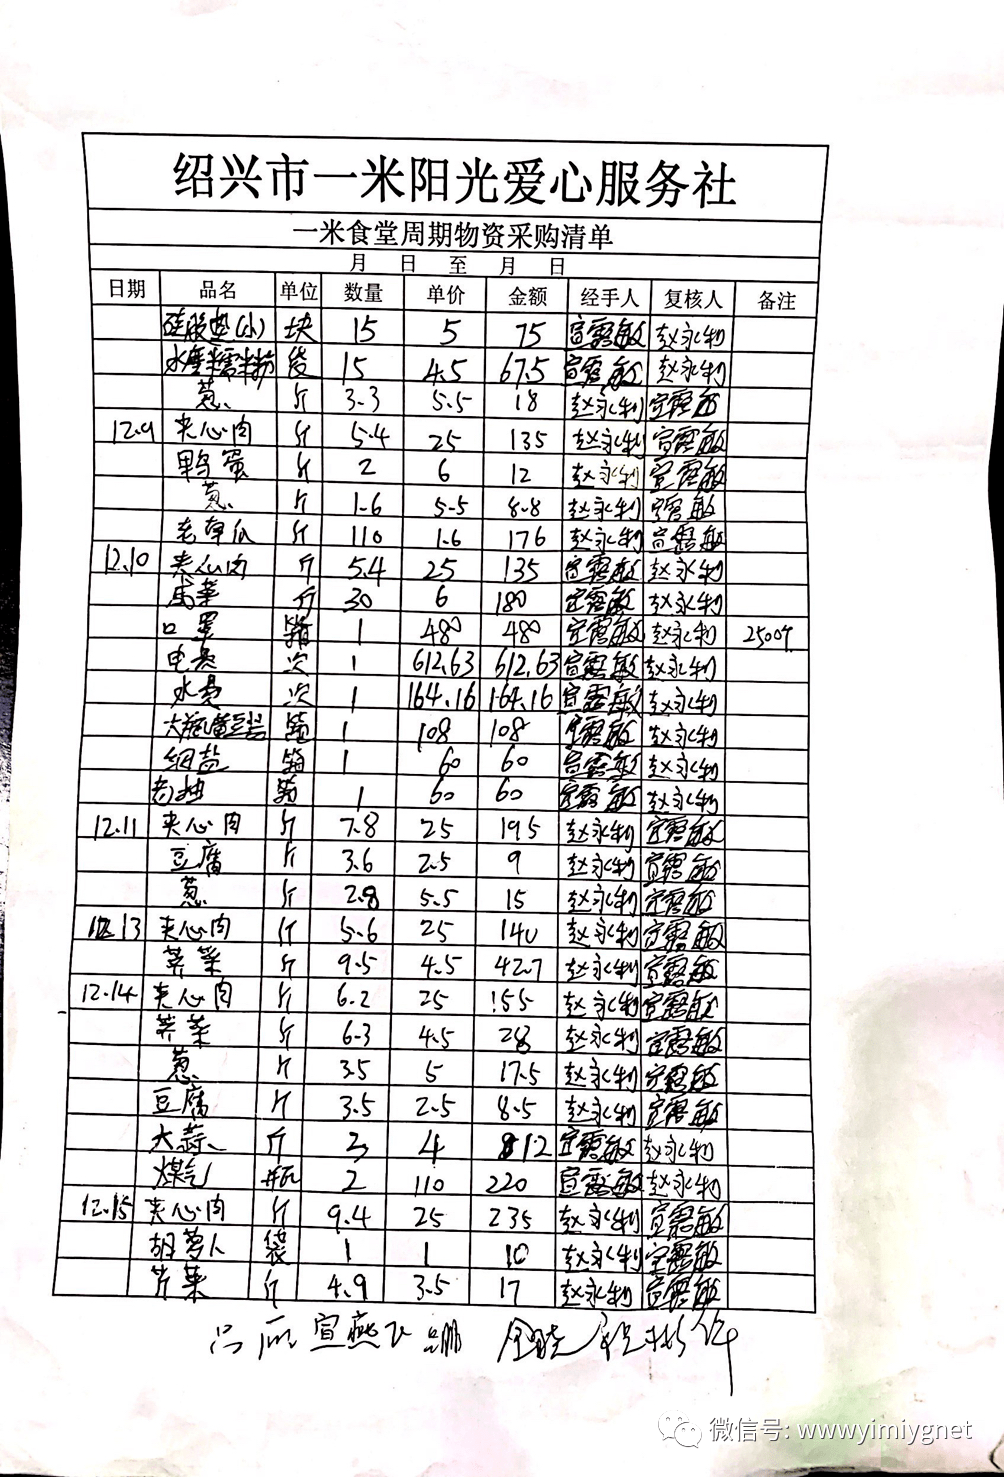 绍兴市一米阳光爱心服务社
一米食堂周期物资采购清单
月 日 至 月 日
日期 品名 单位 数量 单价 金额 经手人 复核人 备注
硅胶垫(小) 块 15 5 75 宣露敏 赵永利
水磨糯米粉 袋 15 4.5 67.5 宣露敏 赵永利
葱 斤 3.3 5.5 18 赵永利 宣露敏
12.9 夹心肉 斤 5.4 25 135 赵永利 宣露敏
鸭蛋 斤 2 6 12 赵永利 宣露敏
葱 斤 1.6 5.5 8.8 赵永利 宣露敏
老南瓜 斤 110 1.6 176 赵永利 宣露敏
12.10 夹心肉 斤 5.4 25 135 宣露敏 赵永利
斤 30 6 180 宣露敏 赵永利
口罩 箱 1 480 480 宣露敏 赵永利 2500个
电费 次 1 612.63 612.63 宣露敏 赵永利
水费 次 1 164.16 164.16 宣露敏 赵永利
箱 1 108 108 宣露敏 赵永利
细盐 箱 1 60 60 宣露敏 赵永利
老抽 箱 1 60 60 宣露敏 赵永利
12.11 夹心肉 斤 7.8 25 195 赵永利 宣露敏
豆腐 斤 3.6 2.5 9 赵永利 宣露敏
葱 斤 2.8 5.5 15 赵永利 宣露敏
12.13 夹心肉 斤 5.6 25 140 赵永利 宣露敏
荠菜 斤 9.5 4.5 42.7 赵永利 宣露敏
12.14 夹心肉 斤 6.2 25 155 赵永利 宣露敏
荠菜 斤 6.3 4.5 28 赵永利 宣露敏
葱 斤 3.5 5 17.5 赵永利 宣露敏
豆腐 斤 3.5 2.5 8.5 赵永利 宣露敏
大蒜 斤 3 4 12 宣露敏 赵永利
煤气 瓶 2 110 220 宣露敏 赵永利
12.15 夹心肉 斤 9.4 25 235 赵永利 宣露敏
胡萝卜 袋 1 1 10 赵永利 宣露敏
芹菜 斤 4.9 3.5 17 赵永利 宣露敏
宣燕飞
微信号: wwwyimiygnet